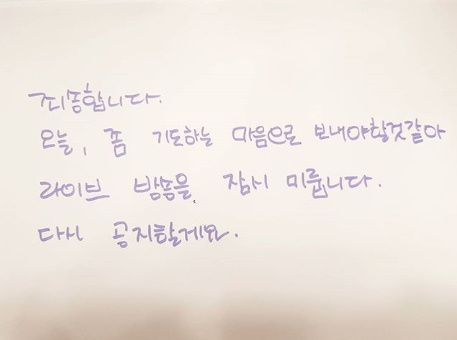 죄송합니다.
오늘, 좀 기도하는 마음으로 보내야할것같아
라이브 방송을 잠시 미룹니다.
다시 공지할게요.